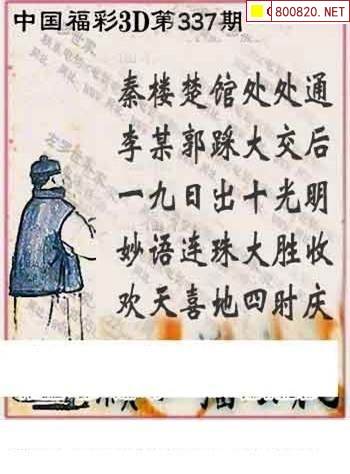 800820.NET
中国福彩3D第337期
秦楼楚馆处处通
李某郭踩大交后
一九日出十光明
妙语连珠大胜收
欢天喜地四时庆